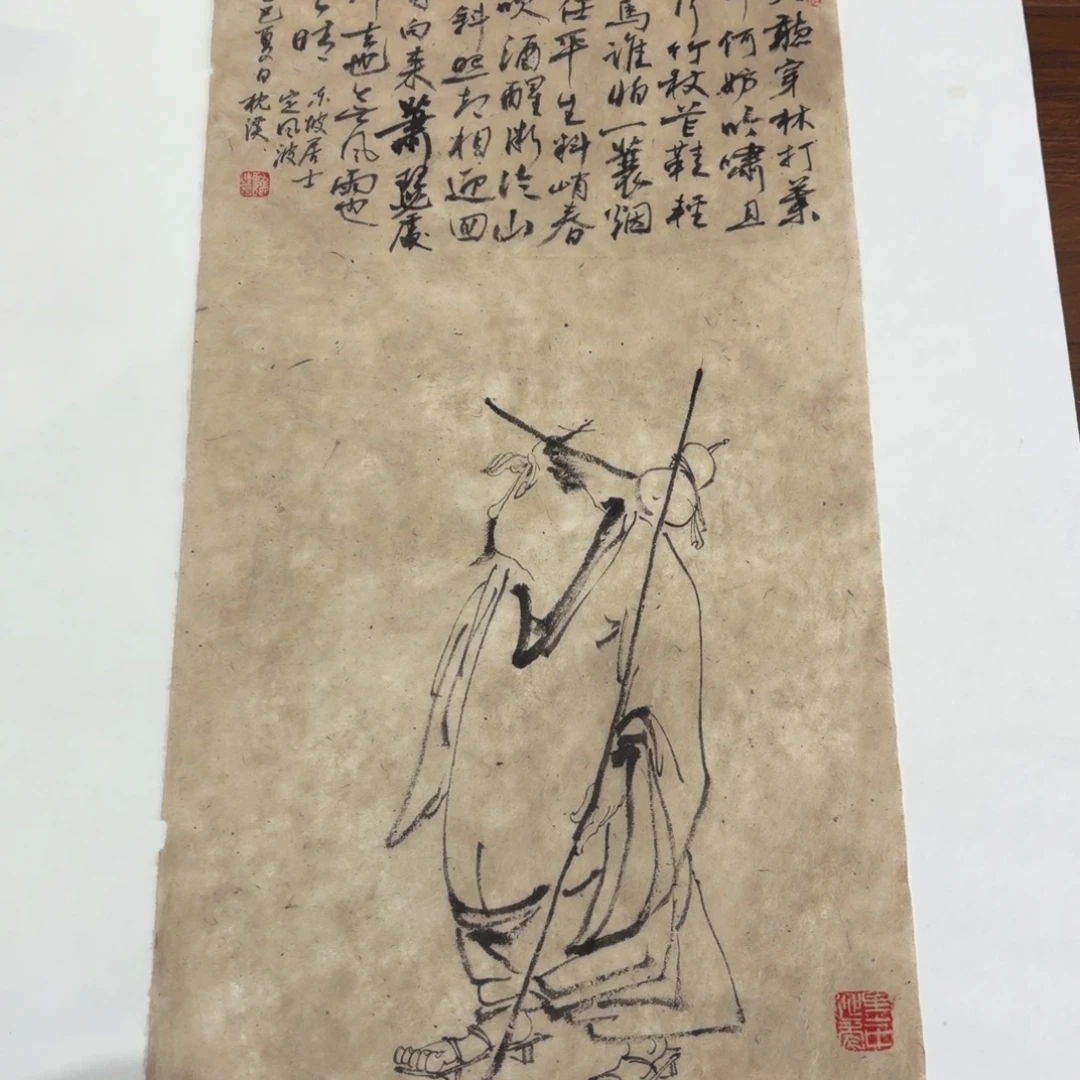 聽穿林打葉
何妨吟嘯且
行竹杖芒鞋輕
馬誰怕一蓑烟
任平生料峭春
吹酒醒微冷山
斜照却相迎回
向来蕭瑟處
去也无風雨也
晴
东坡居士
定風波
巳夏日
枕溪